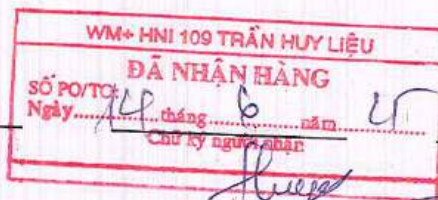 WM+ HNI 109 TRẦN HUY LIỆU
ĐÃ NHẬN HÀNG
SỐ PO/TO:
Ngày 14 tháng 6 năm
Chữ ký người nhận